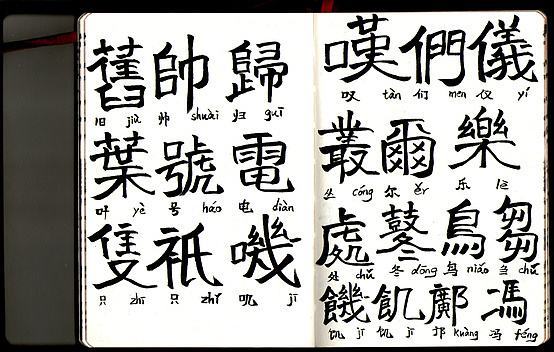 舊 帥 歸
旧 jiù 帅 shuài 归 guī
葉 號 電
叶 yè 号 háo 电 diàn
隻 祇 嘰
只 zhī 只 zhǐ 叽 jī
嘆 們 儀
叹 tàn 们 men 仪 yí
叢 爾 樂
丛 cóng 尔 ěr 乐 lè
處 鼕 鳥 芻
处 chǔ 冬 dōng 鸟 niǎo 刍 chú
饑 飢 鄺 馮
饥 jī 饥 jī 邝 kuàng 冯 féng